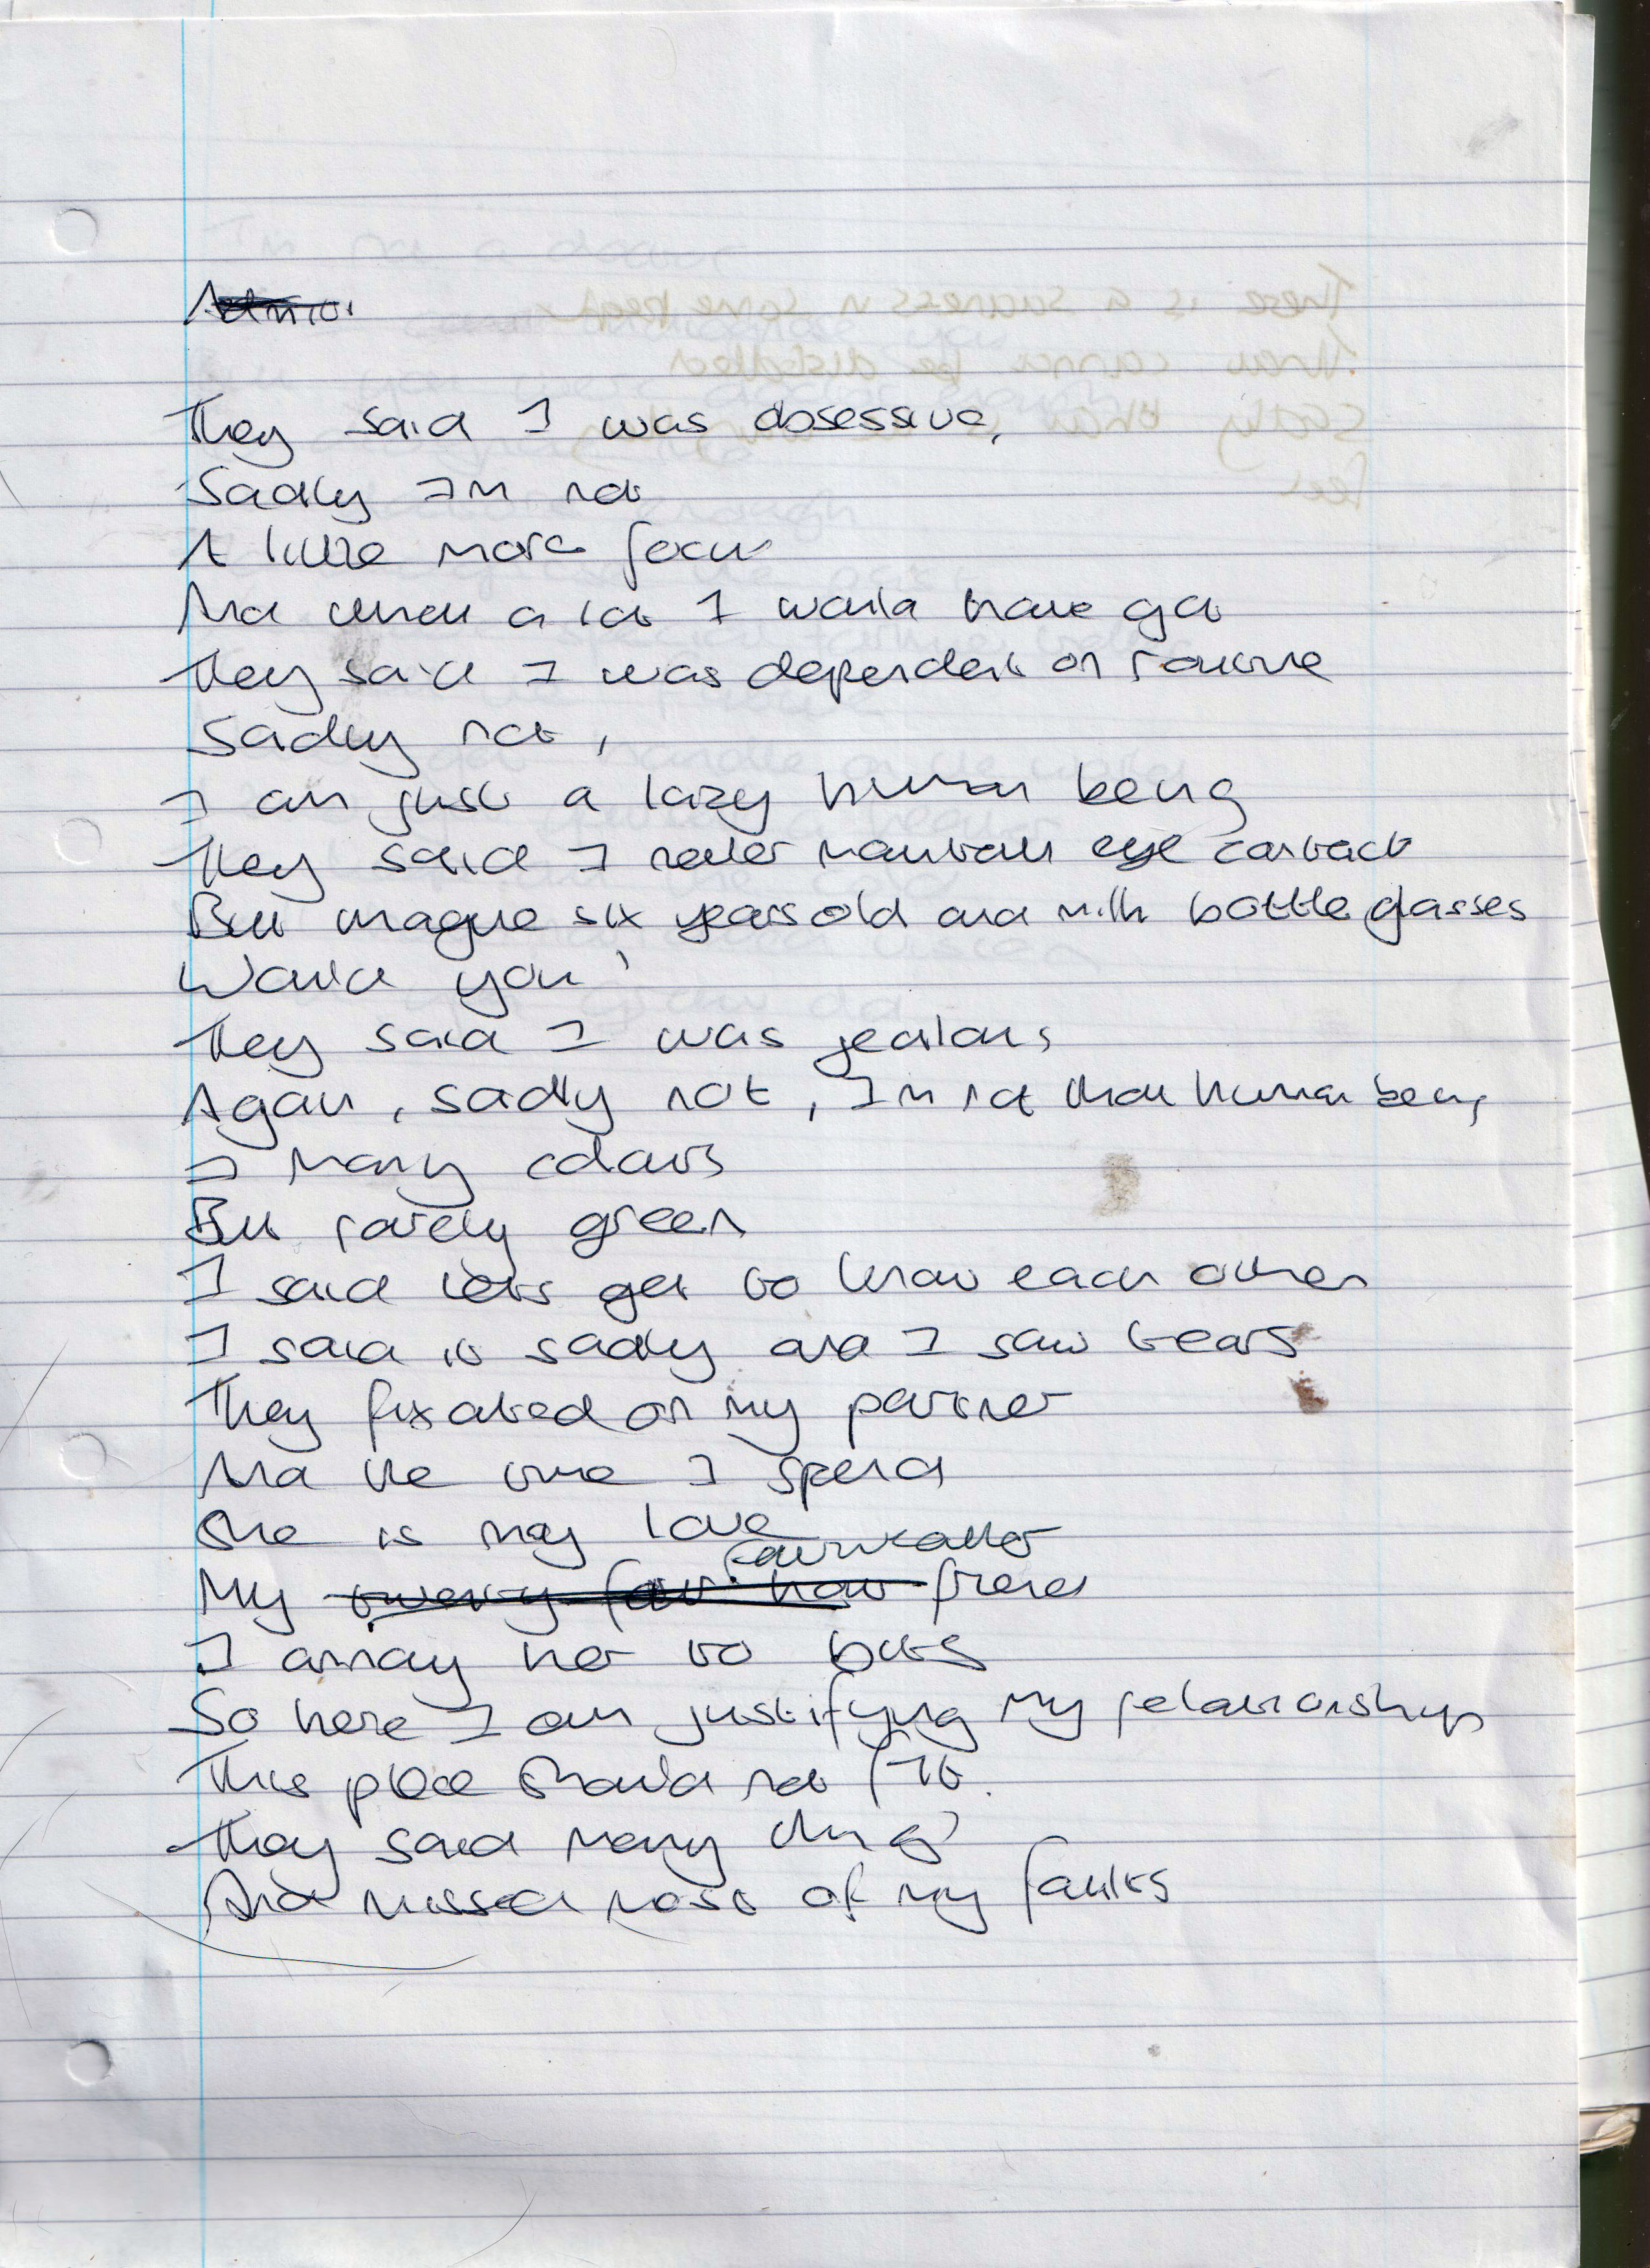 They said I was obsessive,
Sadly I'm not
A little more focus
And what a lot I would have got
They said I was dependent on routine
Sadly not,
I am just a lazy human being
They said I never maintain eye contact
But imagine six years old and milk bottle glasses
Would you?
They said I was jealous
Again, sadly not, I'm not that human being
I many colours
But rarely green
I said lets get to know each other
I said it sadly and I saw tears
They fixated on my partner
And the time I spend
She is my love
My friend
I annoy her to bits
So here I am justifying my relationships
This place should not fit.
They said many things
And missed most of my faults
There is a sadness in some
That cannot be
Sadly
feel